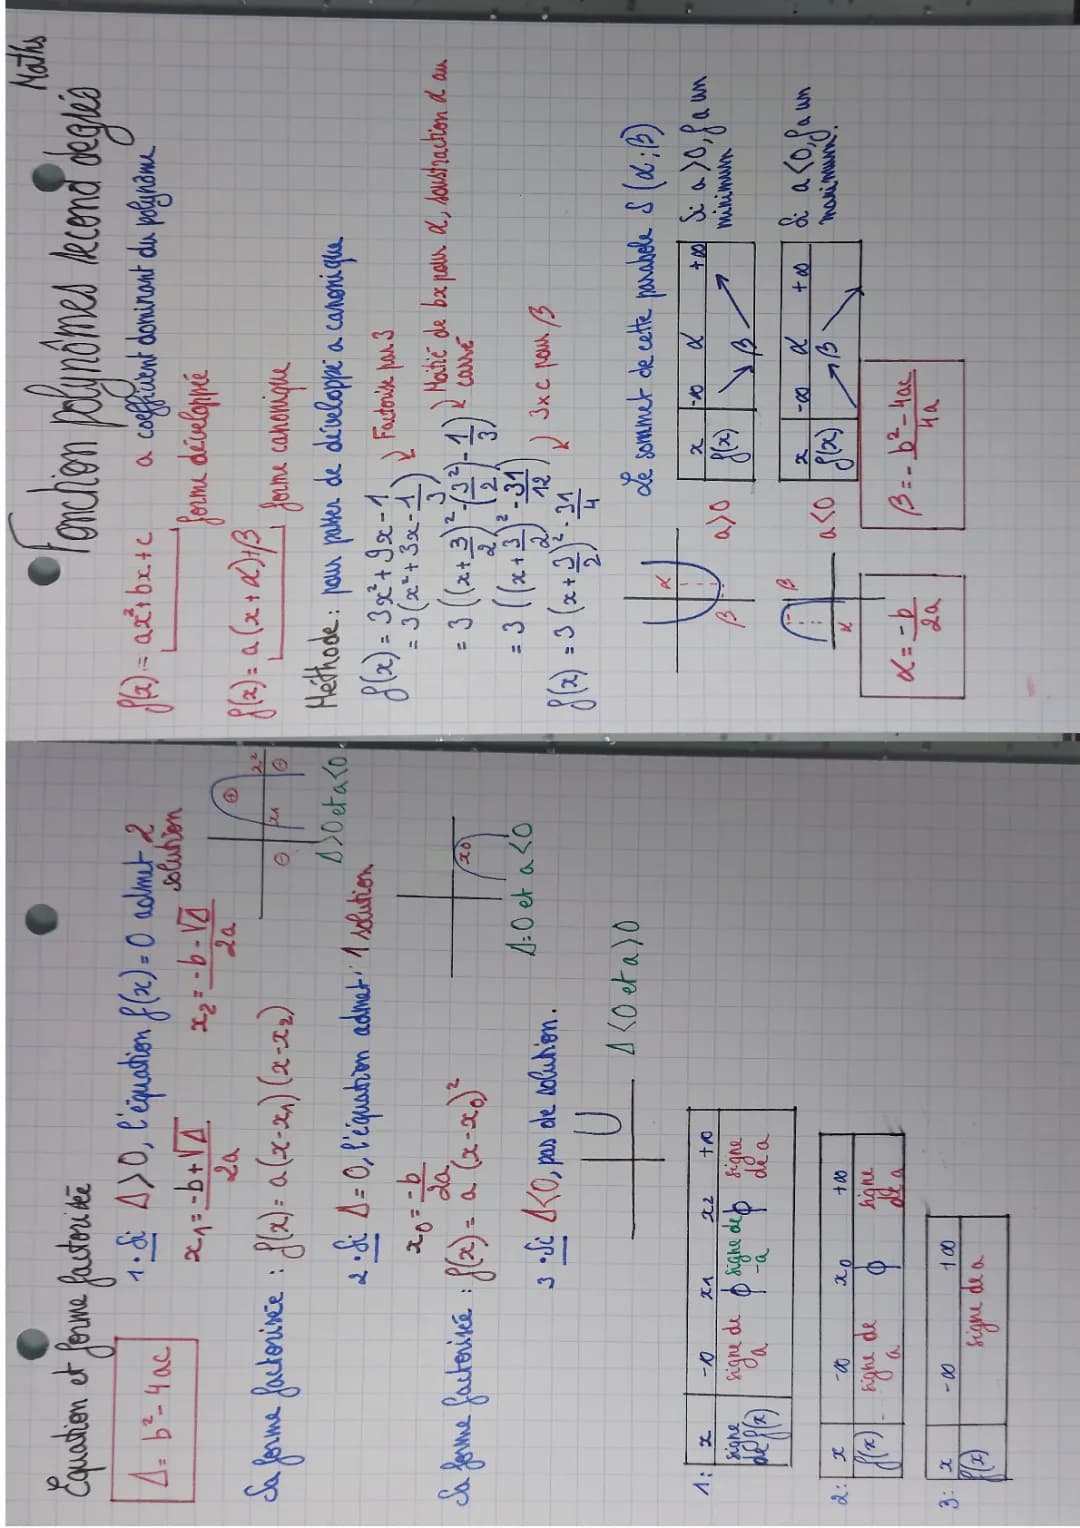 Maths
Fonction polynômes second degrés
f(x) = ax²+bx+c    a coefficient dominant du polynôme
forme développé
f(x) = a(x+α)+β
forme canonique
Méthode : pour passer de développé a canonique
f(x) = 3x²+9x-1
= 3(x²+3x-1/3)    Factorise par 3
= 3((x+3/2)²-(3²/2)-1/3)    Moitié de bx pour α, soustraction α au carré
= 3((x+3/2)²-31/12)
f(x) = 3(x+3/2)²-31/4    3xc pour β
Le sommet de cette parabole S(α;β)
α
β
a>0
x -∞ α +∞
f(x) β
Si a>0, f a un minimum
β
α
a<0
x -∞ α +∞
f(x) β
Si a<0, f a un maximum.
α = -b/2a
β = - b²-4ac/4a
Equation et forme factorisée
Δ = b²-4ac
1. Si Δ>0, l'équation f(x)=0 admet 2 solution
x1 = -b+√Δ/2a    x2 = -b-√Δ/2a
Sa forme factorisée : f(x) = a(x-x1)(x-x2)
⊖ x1 ⊕ x2 ⊖
Δ>0 et a<0
2. Si Δ=0, l'équation admet 1 solution
x0 = -b/2a
Sa forme factorisée : f(x) = a(x-x0)²
x0
Δ=0 et a<0
3. Si Δ<0, pas de solution.
Δ<0 et a>0
1: x -∞ x1 x2 +∞
signe de f(x) signe de a 0 signe de -a 0 signe de a
2: x -∞ x0 +∞
f(x) signe de a 0 signe de a
3: x -∞ +∞
f(x) signe de a